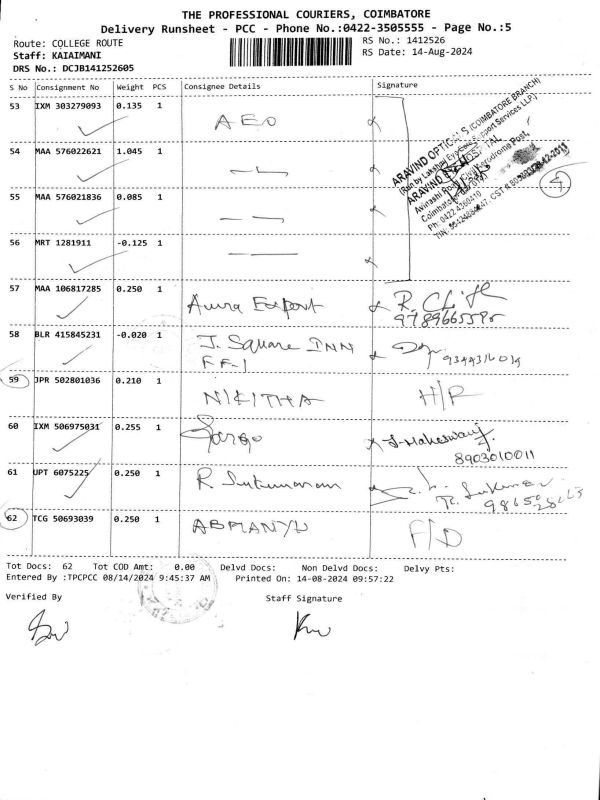 THE PROFESSIONAL COURIERS, COIMBATORE
Delivery Runsheet - PCC - Phone No.:0422-3505555 - Page No.:5
Route: COLLEGE ROUTE
RS No.: 1412526
Staff: KAIAIMANI
RS Date: 14-Aug-2024
DRS No.: DCJB141252605
S No Consignment No Weight PCS Consignee Details Signature
53 IXM 303279093 0.135 1 AEO
ARAVIND OPTICALS (COIMBATORE BRANCH)
(Run by Lakshmi Eye Care Support Services LLP.)
Avinashi Road, Civil Aerodrome Post,
Ph: 0422 4360410
54 MAA 576022621 1.045 1
4
55 MAA 576021836 0.085 1
56 MRT 1281911 -0.125 1
57 MAA 106817285 0.250 1 Aura Export
9789665595
58 BLR 415845231 -0.020 1 J. Square INN
FF-1
59 JPR 502801036 0.210 1 NIKITHA
60 IXM 506975031 0.255 1
8903010011
61 UPT 6075225 0.250 1 R. Sukumaran
62 TCG 50693039 0.250 1 ABMANYU F/D
Tot Docs: 62 Tot COD Amt: 0.00 Delvd Docs: Non Delvd Docs: Delvy Pts:
Entered By :TPCPCC 08/14/2024 9:45:37 AM Printed On: 14-08-2024 09:57:22
Verified By Staff Signature